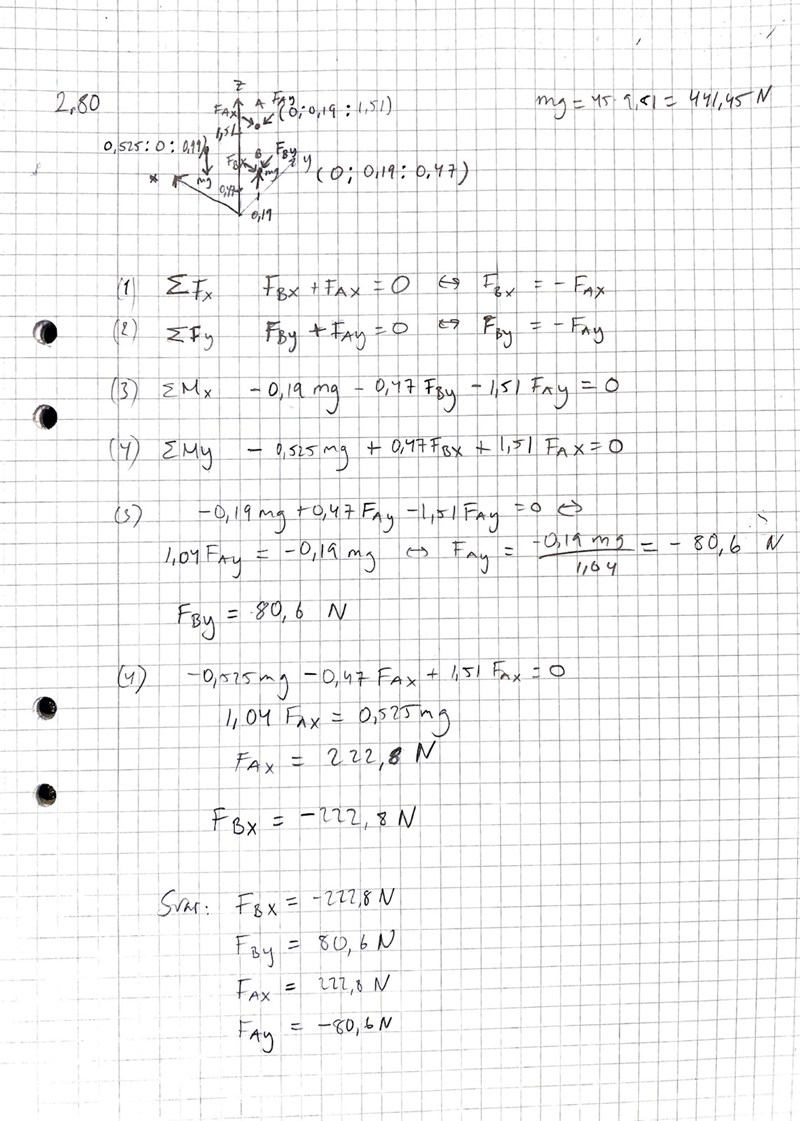 2,80
mg = 45·9,81 = 441,45 N
z
F_Ax A F_Ay
(0; 0,19 ; 1,51)
1,51
0,525 : 0 : 0,99
F_Bx B F_By
x mg mg y (0; 0,19 : 0,47)
0,47
0,19
(1) ΣF_x F_Bx + F_Ax = 0 ⇔ F_Bx = - F_Ax
(2) ΣF_y F_By + F_Ay = 0 ⇔ F_By = - F_Ay
(3) ΣM_x - 0,19 mg - 0,47 F_By - 1,51 F_Ay = 0
(4) ΣM_y - 0,525 mg + 0,47 F_Bx + 1,51 F_Ax = 0
(3) -0,19 mg + 0,47 F_Ay - 1,51 F_Ay = 0 ⇔
1,04 F_Ay = -0,19 mg ⇔ F_Ay = -0,19 mg / 1,04 = - 80,6 N
F_By = 80,6 N
(4) -0,525 mg - 0,47 F_Ax + 1,51 F_Ax = 0
1,04 F_Ax = 0,525 mg
F_Ax = 222,8 N
F_Bx = -222,8 N
Svar: F_Bx = -222,8 N
F_By = 80,6 N
F_Ax = 222,8 N
F_Ay = -80,6 N